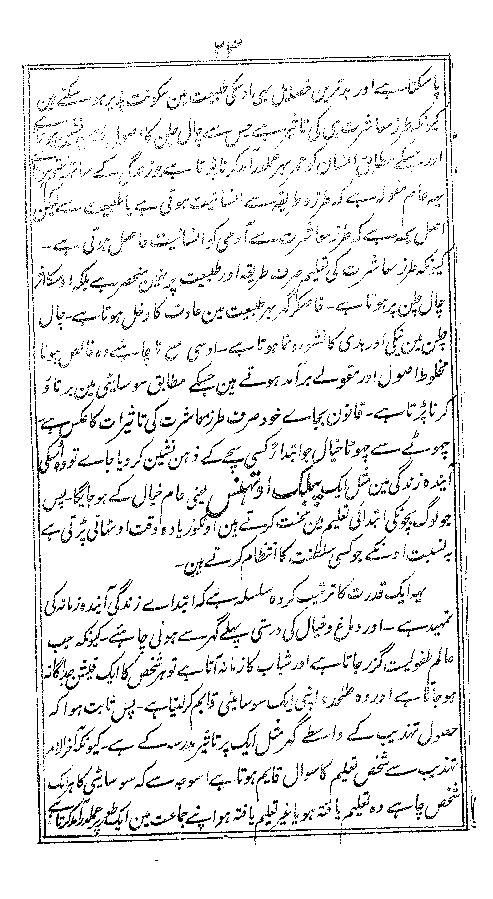 ۲۳
پا سکتا ہے اور بدترین خصایل بھی اوسکی طبیعت مین سکونت پذیر ہو سکتے ہین
کیونکہ طرز معاشرت ہی کی تاثیر ہے جس سے چال چلن کا اصول
اور جسکے مطابق انسان کو عمر بھر عملدرآمد کرنا پڑتا ہے روز زندگی کے ساتھ
یہہ عام مقولہ ہے کہ طرز و طریقہ سے انسانیت ہوتی ہے یا طبیعت سے لیکن
اصل یہہ ہے کہ طرز معاشرت سے آدمی کو انسانیت حاصل ہوتی ہے۔
کیونکہ طرز معاشرت کی تعلیم صرف طریقہ اور طبیعت پر نہین منحصر ہے بلکہ اوسکا اثر
چال چلن پر ہوتا ہے۔ خاصکر گھر ہی طبیعت مین عادت کا دخل ہوتا ہے۔ چال
چلن مین نیکی اور بدی کا نشو و نما ہوتا ہے۔ اوسی سے چاہے وہ خالص ہو یا
مخلوط اصول اور مقولے برآمد ہوتے ہین جسکے مطابق سوسایٹی مین برتاو
کرنا پڑتا ہے۔ قانون بجاے خود صرف طرز معاشرت کی تاثیرات کا عکس ہے
چھوٹے سے چھوٹا خیال جو ابتدا کسی بچے کے ذہن نشین کر دیا جاے تو وہ اسکی
آیندہ زندگی مین مثل ایک پبلک اوپینین یعنی عام خیال کے ہو جائیگا۔ پس
جو لوگ بچونکی ابتدائی تعلیم مین محنت کرتے ہین اونکو زیادہ وقت اوٹھانی پڑتی ہے
بہ نسبت اونکے جو کسی سلطنت کا انتظام کرتے ہین۔
یہہ ایک قدرت کا ترتیب کردہ سلسلہ ہے کہ ابتداے زندگی آیندہ زمانہ کی
تمہید ہے۔ اور دماغ و خیال کی درستی پہلے گھر سے ہونی چاہئے۔ کیونکہ جب
عالم طفولیت گزر جاتا ہے اور شباب کا زمانہ آتا ہے تو ہر شخص کا ایک فیشن جداگانہ
ہو جاتا ہے اور وہ علحدہ اپنی ایک سوسایٹی قایم کر لیتا ہے۔ پس ثابت ہوا کہ
حصول تہذیب کے واسطے گھر مثل ایک پر تاثیر مدرسہ کے ہے۔ کیونکہ
تہذیب سے شخصی تعلیم کا سوال قایم ہوتا ہے اسوجہ سے کہ سوسایٹی کا ہر ایک
شخص چاہے وہ تعلیم یافتہ ہو یا غیر تعلیم یافتہ ہو اپنے جماعت مین ایک طور پر عملدرآمد کرتا ہے